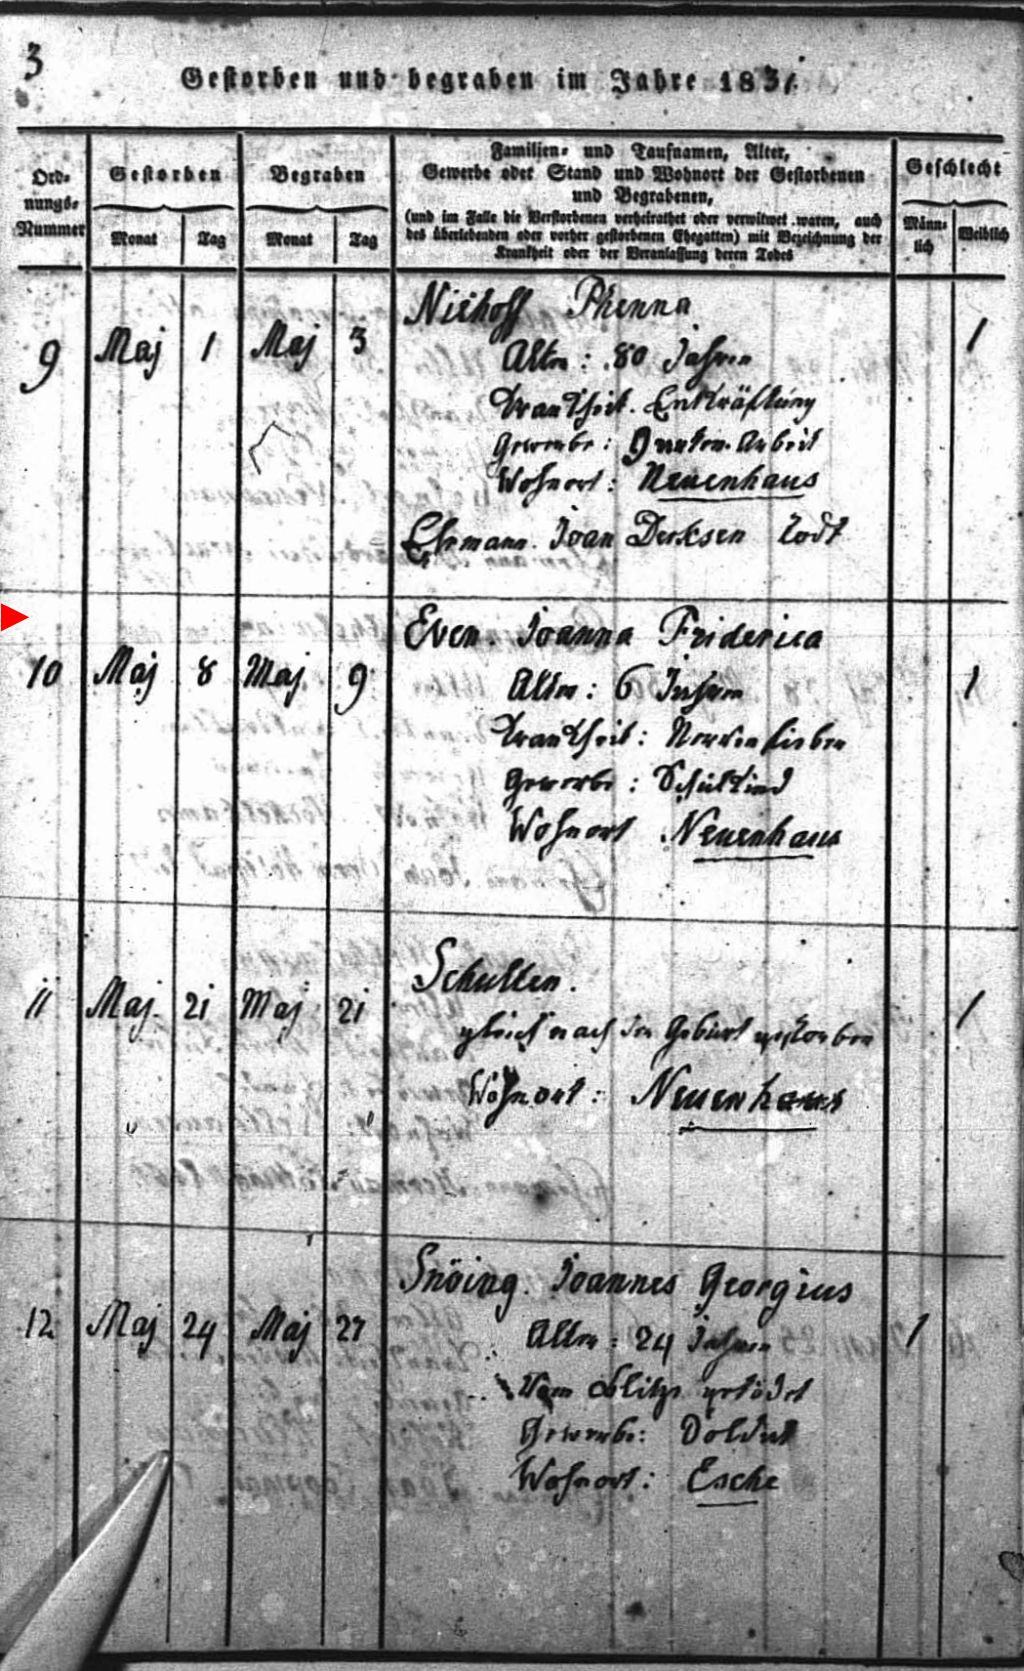 3
Gestorben und begraben im Jahre 1831.
Ord-
nungs-
Nummer
Gestorben
Monat
Tag
Begraben
Monat
Tag
Familien- und Taufnamen, Alter,
Gewerbe oder Stand und Wohnort der Gestorbenen
und Begrabenen,
(und im Falle die Verstorbenen verheirathet oder verwitwet waren, auch
des überlebenden oder vorher gestorbenen Ehegatten) mit Bezeichnung der
Krankheit oder der Veranlassung deren Todes
Geschlecht
Männ-
lich
Weiblich
9 Maj 1 Maj 3 Niehoff Phenna 1
Alter: 80 Jahren
Krankheit. Entkräftung
Gewerbe: Arbeit
Wohnort: Neuenhaus
Ehemann. Joan Derksen todt
10 Maj 8 Maj 9 Even. Joanna Friderica 1
Alter: 6 Jahren
Krankheit: Nervenfieber
Gewerbe: Schulkind
Wohnort Neuenhaus
11 Maj. 21 Maj 21 Schulten. 1
gleich nach der Geburt gestorben
Wohnort: Neuenhaus
12 Maj 24 Maj 27 Snöing. Joannes Georgius 1
Alter: 24 Jahren
Vom Blitze getödet
Gewerbe: Soldat
Wohnort: Esche